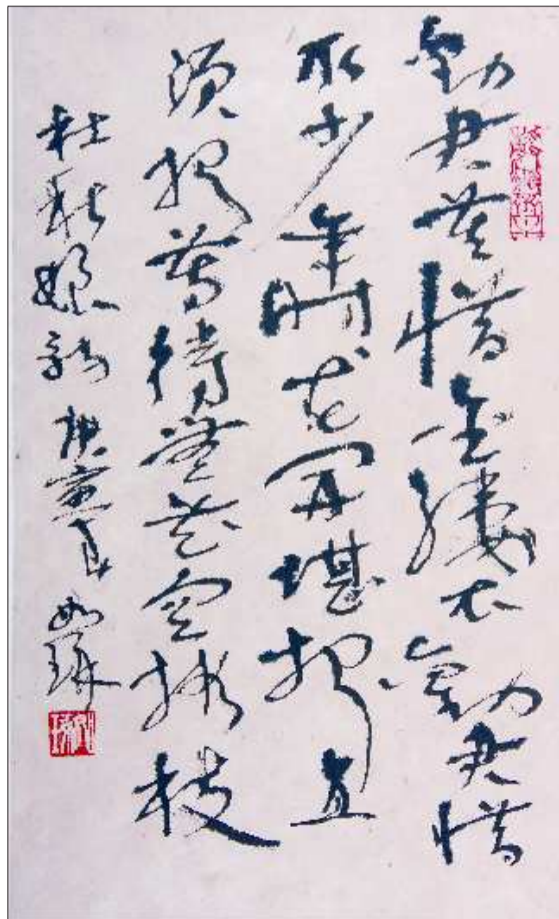 勸君莫惜金縷衣勸君惜
取少年時花開堪折直
須折莫待無花空折枝
杜秋娘詩 庚寅